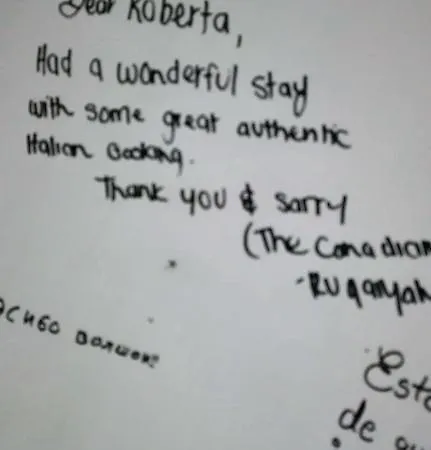 Dear Roberta,
Had a wonderful stay
with some great authentic
Italian Cooking.
Thank you & sorry
(The Canadian
-Ruqayyah
асибо большое
Esto
de